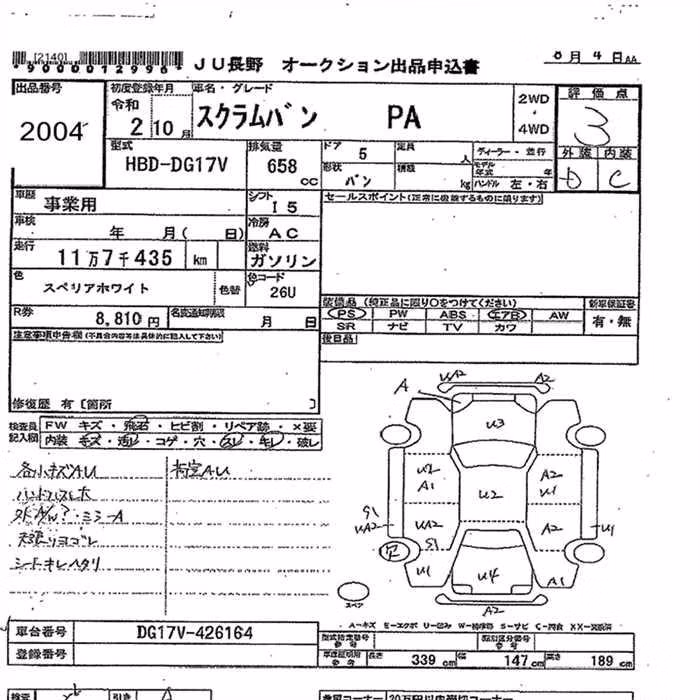 [2140]
*9000012996*
JU長野 オークション出品申込書
8月 4日AA
出品番号
2004
初度登録年月
令和
2 10月
車名・グレード
スクラムバン PA
2WD
4WD
評価点
3
外装 内装
D C
型式
HBD-DG17V
排気量
658
CC
ドア
5
定員
人
ディーラー・並行
形状
バン
積載
kg
モデル
年式 年
ハンドル 左・右
車歴
事業用
シフト
I5
セールスポイント(正常に機能するものに限ります)
車検
年 月( 日)
冷房
AC
走行
11万7千435 km
燃料
ガソリン
色
スペリアホワイト
色替
色コード
26U
装備品 (純正品に限り○をつけてください)
新車保証書
PS PW ABS エアB AW
有・無
SR ナビ TV カワ
R券
8,810円
名変通知期限
月 日
後日品
注意事項申告欄(不具合内容等は具体的に記入して下さい)
修復歴 有〔箇所 〕
検査員
記入欄
FW キズ・飛石・ヒビ割・リペア跡・×要
内装 キズ・汚レ・コゲ・穴・スレ・キレ・破レ
各小キズAU
荷室AU
ミラーA
天張りヨゴレ
シートキレヘタリ
A
UA2
A2
U3
U2
A1
A2
U1
U2
S1
UA2
UA2
A2
U1
S1
U1
U4
A1
A2
スペア
A-キズ E-エクボ U-凹み W-補修跡 S-サビ C-腐食 XX-交換済
車台番号
DG17V-426164
登録番号
型式指定番号
参考
類別区分番号
参考
車庫証明用
参考
長さ
339cm
幅
147cm
高さ
189cm